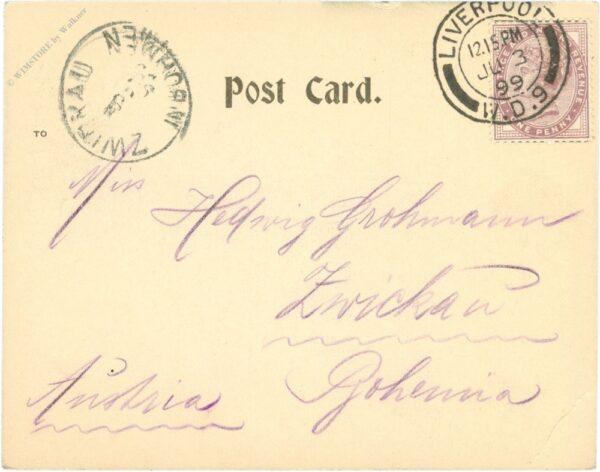 © WIMSTORE by Walkner
LIVERPOOL
12.15 PM
JU 3
99
W.D.9
REVENUE
ONE PENNY
Post Card.
TO
Miss
Hedwig Grohmann
Zwickau
Austria Bohemia